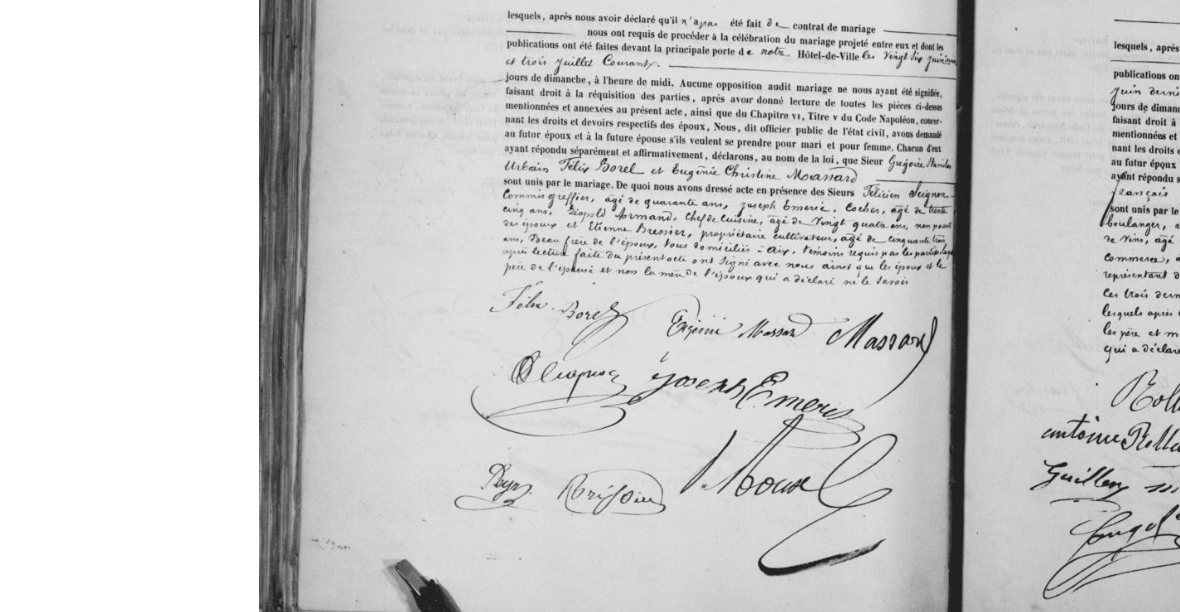 lesquels, après nous avoir déclaré qu'il n'a pas été fait de contrat de mariage
nous ont requis de procéder à la célébration du mariage projeté entre eux et dont les
publications ont été faites devant la principale porte de notre Hôtel-de-Ville les Vingt six juin
et trois Juillet Courant.
jours de dimanche, à l'heure de midi. Aucune opposition audit mariage ne nous ayant été signifiée,
faisant droit à la réquisition des parties, après avoir donné lecture de toutes les pièces ci-dessus
mentionnées et annexées au présent acte, ainsi que du Chapitre VI, Titre V du Code Napoléon, concer-
nant les droits et devoirs respectifs des époux, Nous, dit officier public de l'état civil, avons demandé
au futur époux et à la future épouse s'ils veulent se prendre pour mari et pour femme. Chacun d'eux
ayant répondu séparément et affirmativement, déclarons, au nom de la loi, que Sieur Grégoire
Urbain Félix Borel et Eugénie Christine Massard
sont unis par le mariage. De quoi nous avons dressé acte en présence des Sieurs Félicien
Commis greffier, âgé de quarante ans, Joseph Emeric, Cocher, âgé de trente
cinq ans, Léopold Armand, Chef de cuisine, âgé de Vingt quatre ans, non parent
des époux et Etienne Bressier, propriétaire cultivateur, âgé de cinquante trois
ans, Beau frère de l'époux, tous domiciliés à Aix, témoins requis par les parties
après lecture faite du présent acte ont signé avec nous ainsi que les époux et le
père de l'épouse et non la mère de l'époux qui a déclaré ne le savoir
Félix Borel Eugénie Massard Massard
Joseph Emeric
lesquels, après
publications on
Juin derni
jours de diman
faisant droit à
mentionnées et
nant les droits e
au futur époux
ayant répondu s
français
sont unis par le
boulanger,
de Vins, âgé
Commerce,
représentant d
Les trois dern
lesquels après
les père et m
qui a déclaré
antoine
Guillery